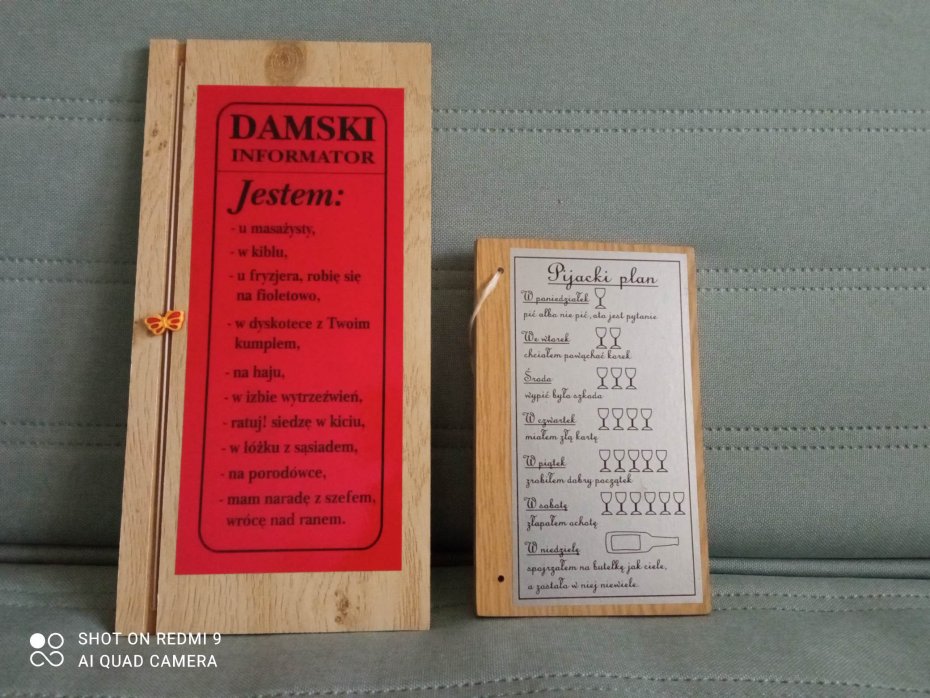 DAMSKI
INFORMATOR
Jestem:
- u masażysty,
- w kiblu,
- u fryzjera, robię się
na fioletowo,
- w dyskotece z Twoim
kumplem,
- na haju,
- w izbie wytrzeźwień,
- ratuj! siedzę w kiciu,
- w łóżku z sąsiadem,
- na porodówce,
- mam naradę z szefem,
wrócę nad ranem.
Pijacki plan
W poniedziałek
pić albo nie pić, oto jest pytanie
We wtorek
chciałem powąchać korek
Środa
wypić było szkoda
W czwartek
miałem złą kartę
W piątek
zrobiłem dobry początek
W sobotę
złapałem ochotę
W niedzielę
spojrzałem na butelkę jak ciele,
a zostało w niej niewiele.
SHOT ON REDMI 9
AI QUAD CAMERA